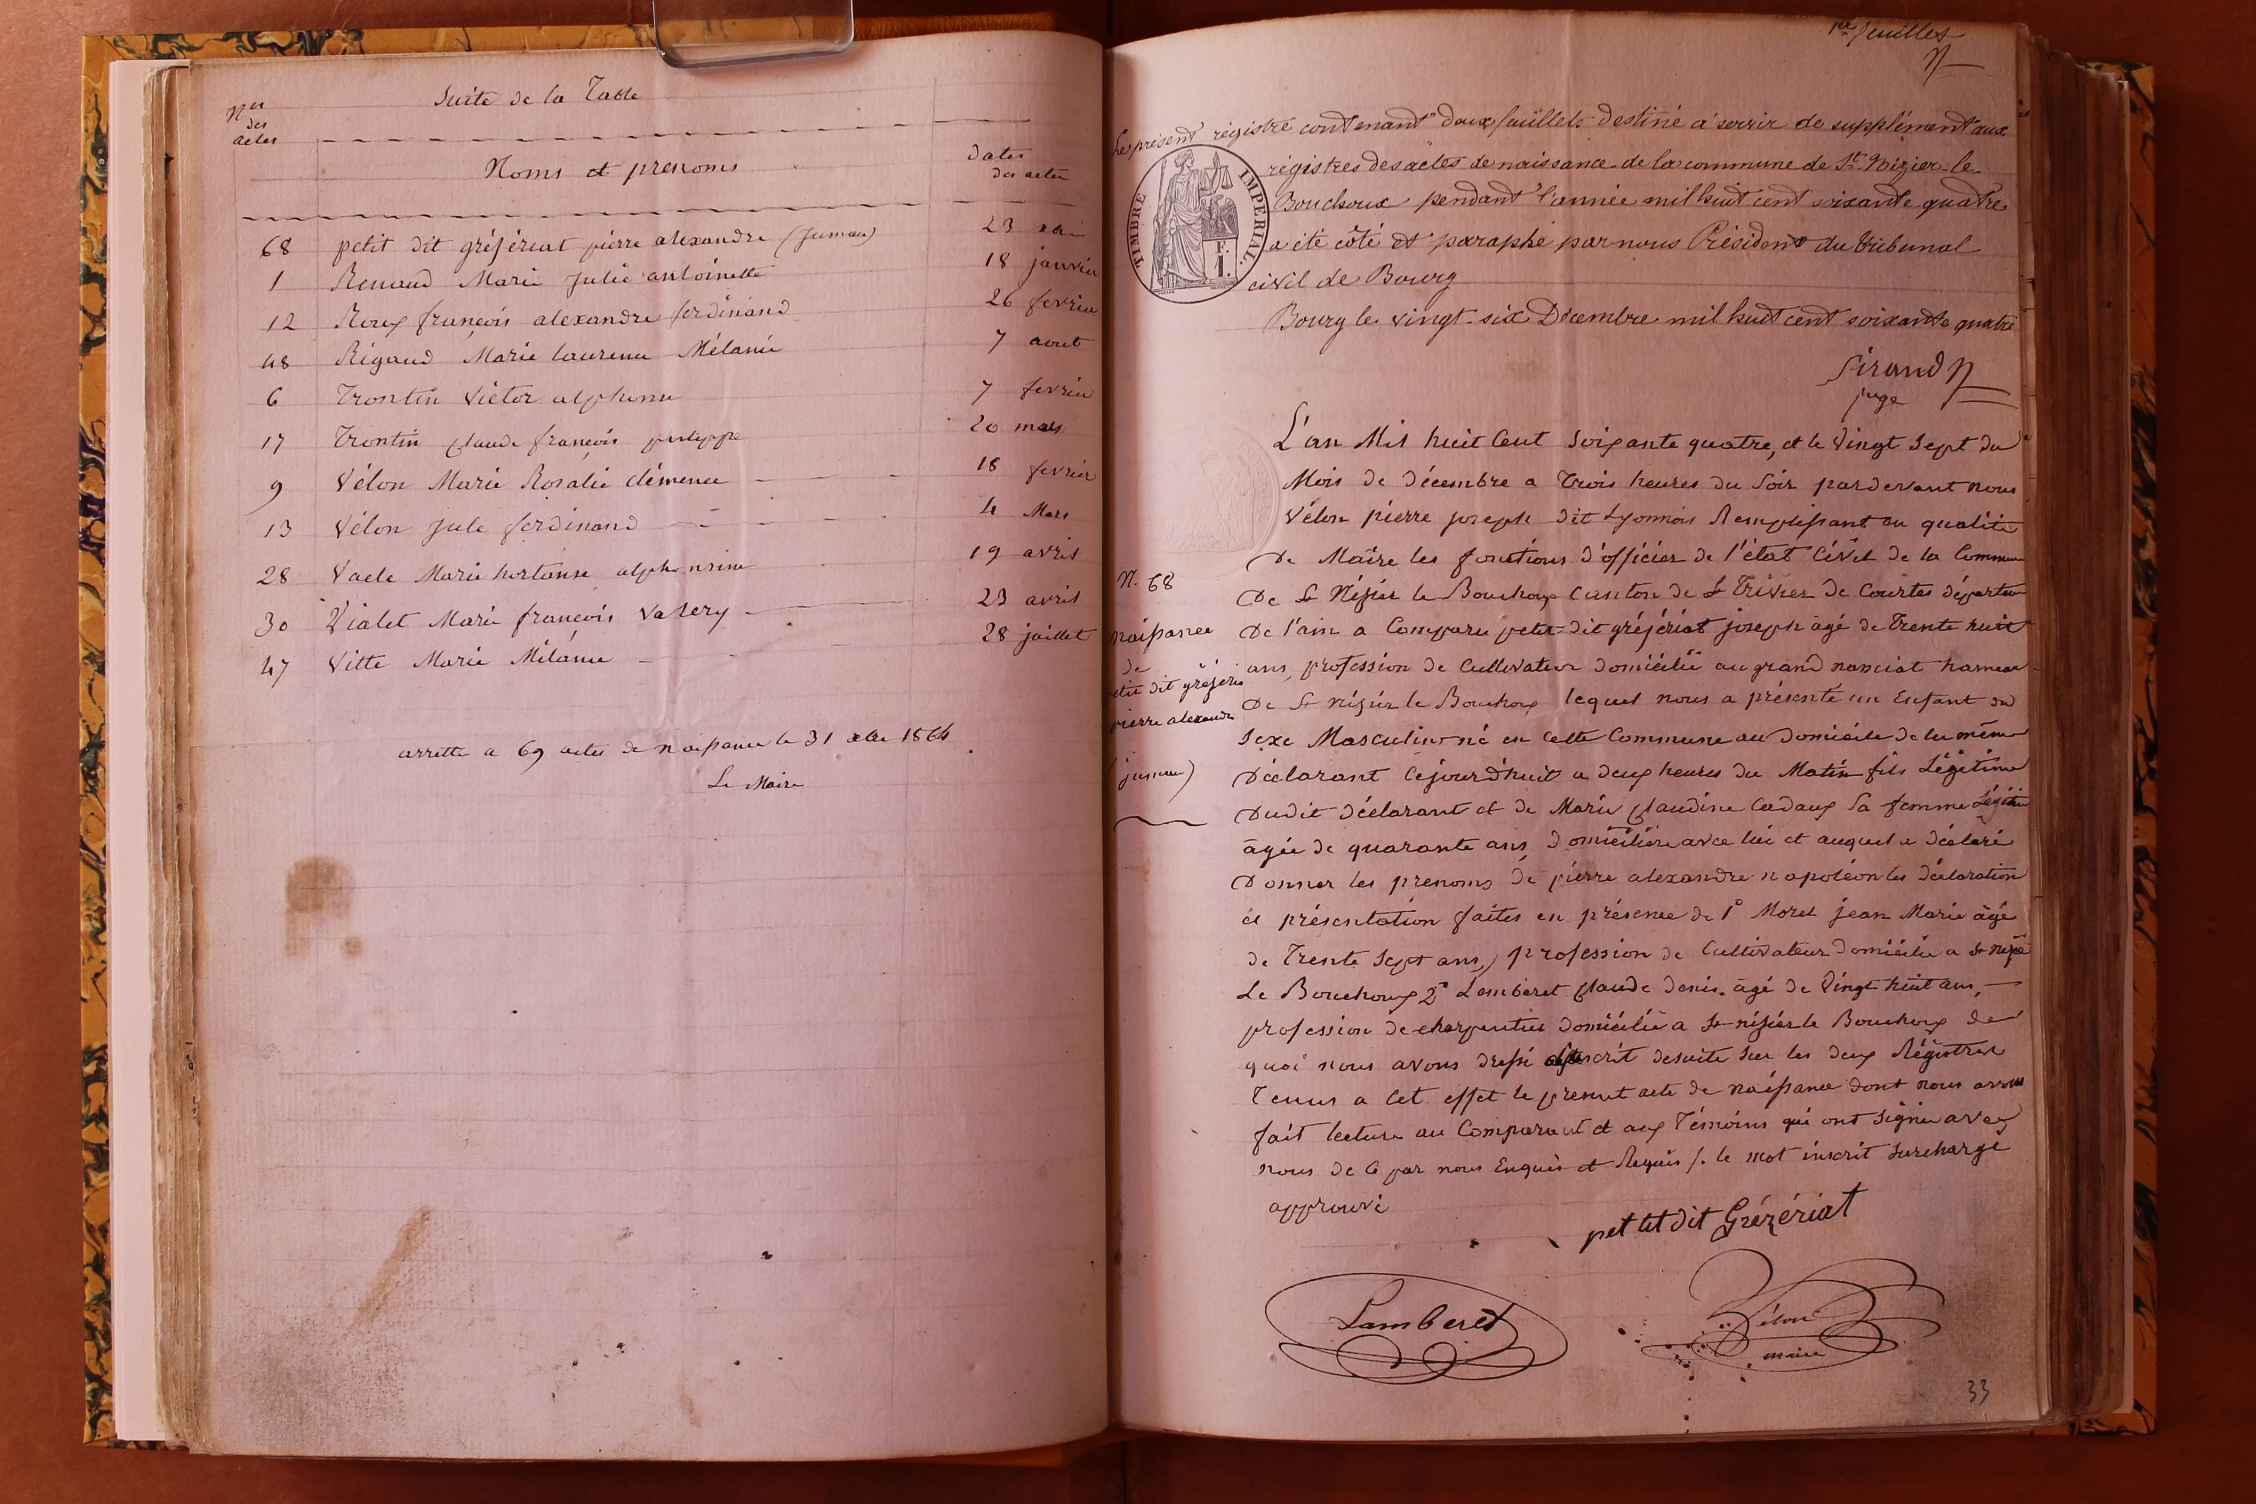 Suite de la Table
Nos
des
actes
Noms et prenoms
dates
des actes
68 petit dit gréfériat pierre alexandre (Jumau) 23 xbre
1 Renaud Marie Julie antoinette 18 janvier
12 Roux françois alexandre ferdinand 26 fevrier
48 Rigaud Marie laurence Mélanie 7 aout
6 Trontin Victor alphonse 7 fevrier
17 Trontin Claude françois philippe 20 mars
9 Vélon Marie Rosalie clémence 18 fevrier
13 Vélon Jule ferdinand 4 Mars
28 Vacle Marie hortense alphonsine 19 avril
30 Vialet Marie françois Valery 23 avril
47 Vitte Marie Mélanie 28 juillet
arretté a 69 actes de naissance le 31 xbre 1864
Le Maire
1er feuillet
Le présent régistre contenant deux feuillets destiné à servir de supplément aux
régistres des actes de naissance de la commune de St Nizier-le-
Bouchoux pendant l'année mil huit cent soixante quatre
a été côté et paraphé par nous Président du tribunal
civil de Bourg
Bourg le vingt-six Décembre mil huit cent soixante quatre
TIMBRE IMPÉRIAL.
F.
1.
Sirand
juge
L'an Mil huit Cent Soixante quatre, et le Vingt Sept du
Mois de décembre a Trois heures du Soir pardevant nous
Vélon pierre joseph dit Lyonnois Remplissant en qualité
De Maire les fonctions d'officier de l'état Civil de la Commune
De St Nizier le Bouchoux Canton de St Trivier de Courtes départem
De l'ain a Comparu petit dit gréfériat joseph âgé de Trente huit
ans, profession de Cultivateur domicilié au grand nanciat hameau
De St nizier le Bouchoux lequel nous a présenté un Enfant du
Sexe Masculin né en Cette Commune au domicile de lui même
Déclarant Cejourd'huit a deux heures du Matin fils Légitime
Dudit déclarant et de Marie Claudine Cadaux Sa femme Légitime
âgée de quarante ans, domiciliée avec lui et auquel a déclaré
Donner les prenoms de pierre alexandre napoléon les déclaration
et présentation faites en présence de 1° Morel jean Marie âgé
de Trente Sept ans, profession de Cultivateur domicilié a St nizier
Le Bouchoux 2° Lamberet Claude denis âgé de Vingt huit ans,
profession de charpentier domicilié a St nizier le Bouchoux de
quoi nous avons dressé inscrit desuite Sur les deux Régistres
Tenus a Cet effet le présent acte de naissance dont nous avons
fait lecture au Comparant et aux Témoins qui ont Signé avec
nous de Ce par nous Enquis et Requis /. le mot inscrit Surchargé
approuvé
N. 68
naissance
de
petit dit gréféria
pierre alexandre
(jumeau)
petit dit Grézériat
Lamberet
Vélon
maire
33